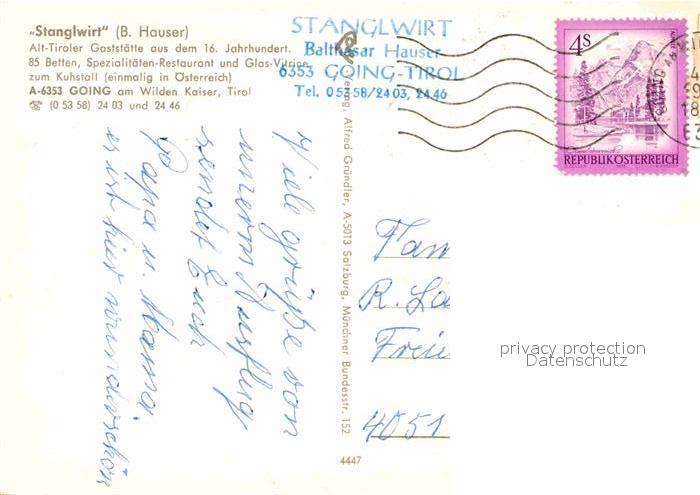 „Stanglwirt" (B. Hauser)
Alt-Tiroler Gaststätte aus dem 16. Jahrhundert.
85 Betten, Spezialitäten-Restaurant und Glas-Vitrine
zum Kuhstall (einmalig in Österreich)
A-6353 GOING am Wilden Kaiser, Tirol
☏ (0 53 58) 24 03 und 24 46
STANGLWIRT
Balthasar Hauser
6353 GOING-TIROL
Tel. 0 53 58/24 03, 24 46
4S
REPUBLIK ÖSTERREICH
Viele grüße von
unserm Ausflug
sendet Euch
Papa u. Mama
es ist hier wunderschön
Verlag, Alfred Gründler, A-5013 Salzburg, Münchner Bundesstr. 152
4447
Fam
R. La
Frei
4051
privacy protection
Datenschutz